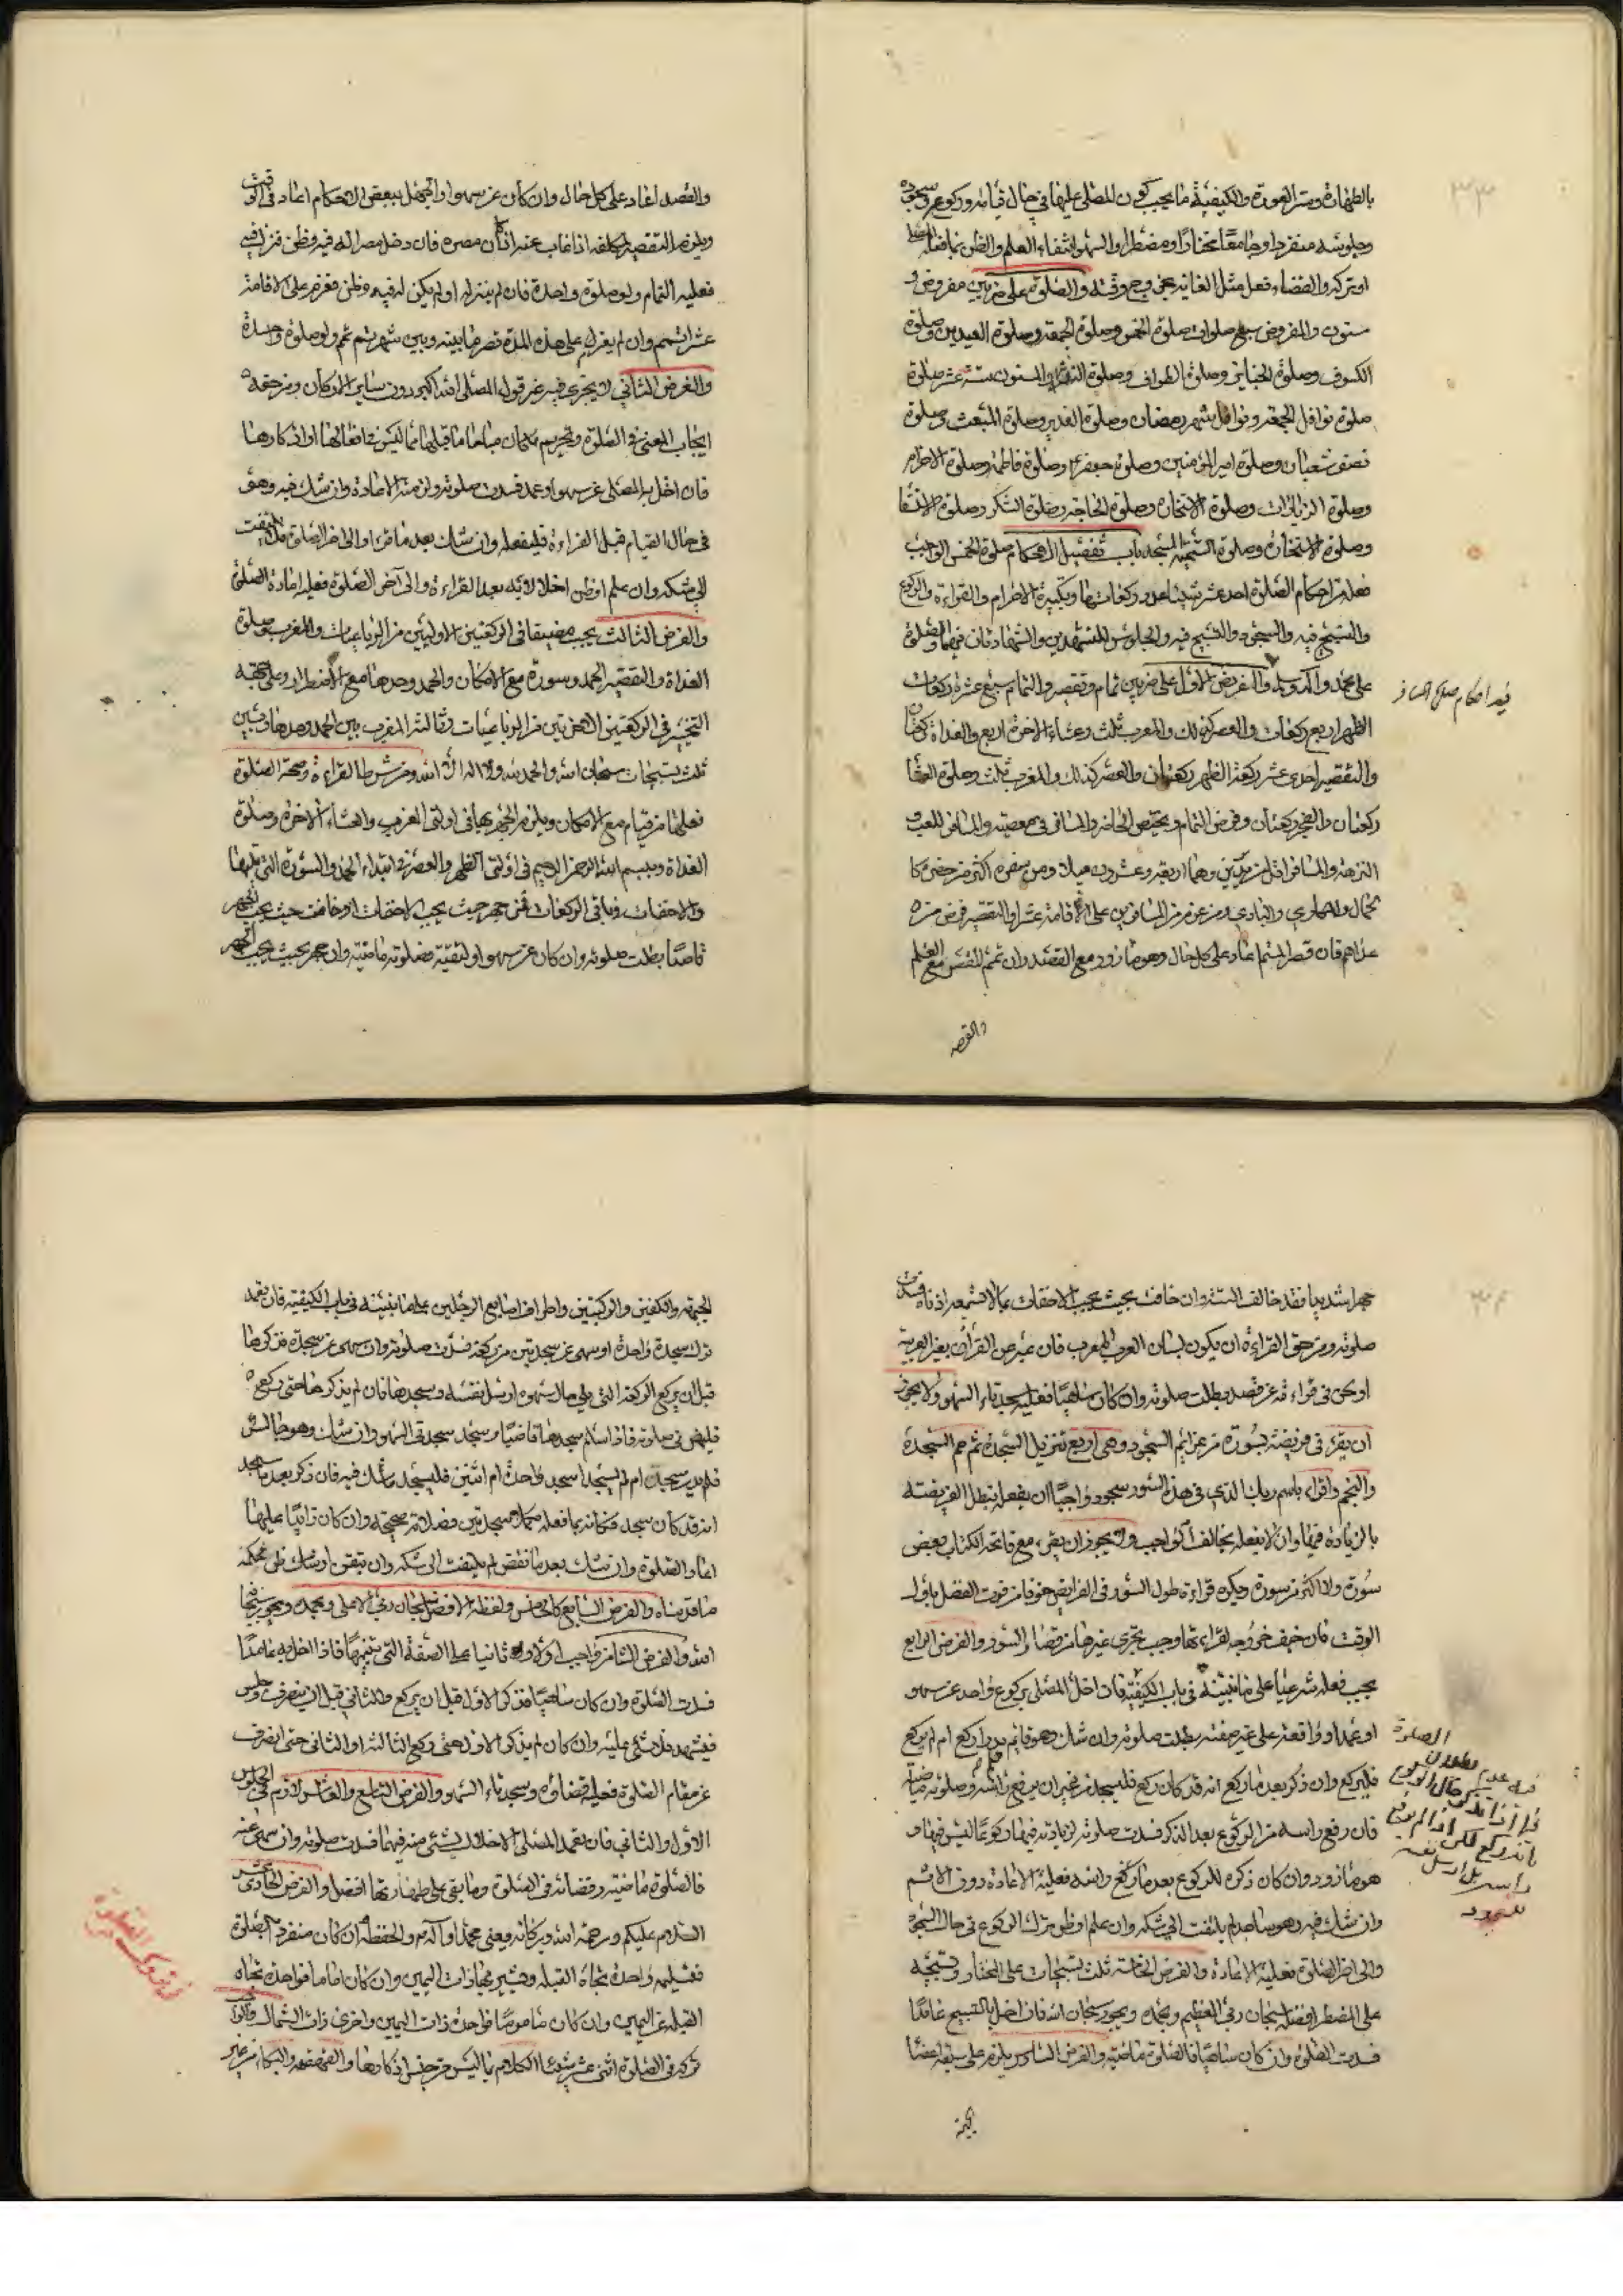 ٣٣
بالطهارة وستر العورة والكيفية ما يجب كون المصلى عليها في حال قيامه وركوعه وسجوده
وجلوسه منفردا وجامعا مختارا ومضطرا والسهو انتفاء العلم والظن بما فعله المصلى
او تركه والقضاء فعل مثل الفائت بخروج وقته والصلوة على ضربين مفروض و
مسنون والمفروض سبع صلوات صلوة الخمس وصلوة الجمعة وصلوة العيدين وصلوة
الكسوف وصلوة الجنايز وصلوة الطواف وصلوة النذر والمسنون ستة عشر صلوة
صلوة نوافل الجمعة ونوافل شهر رمضان وصلوة الغدير وصلوة المبعث وصلوة
نصف شعبان وصلوة امير المؤمنين وصلوة جعفر وصلوة فاطمة وصلوة الاحرام
وصلوة الزيارات وصلوة الاستخارة وصلوة الحاجة وصلوة الشكر وصلوة الاستسقا
وصلوة الاستخارة وصلوة التحية المسجد باب تفصيل الاحكام صلوة الخمس الواجب
فعله من احكام الصلوة احد عشر شيئا عدد ركعاتها وتكبيرة الاحرام والقراءة والركوع
والتسبيح فيه والسجود والتسبيح فيه والجلوس للتشهدين والشهادتان فيهما والصلوة
على محمد وآله والتسليم والفرض الاول على ضربين تمام وتقصير والتمام سبع عشرة ركعات
فيه احكام صلوة المسافر
الظهر اربع ركعات والعصر كذلك والمغرب ثلث وعشاء الاخرة اربع والغداة ركعتان
والتقصير احدى عشر ركعة الظهر ركعتان والعصر كذلك والمغرب ثلث وصلوة العشا
ركعتان والفجر ركعتان وفرض التمام ويختص الحاضر والمسافر في معصية والمسافر للعب و
النزهة والمسافر اقل من بريدين وهما اربعة وعشرون ميلا ومن سفره اكثر من حضره كا
لجمال والمكاري والبادي ومن عزم من المسافرين على الاقامة عشرا والتقصير فرض من
عداهم فان قصر المتمم اعاد على كل حال وهو مازور مع القصد وان تمم المقصر مع العلم
والقصد
والقصد اعاد على كل حال وان كان عن سهو او لجهل ببعض الاحكام اعاد في الوقت
ويلزم التقصير المكلف اذا غاب عنه اذان مصره فان دخل مصرا له فيه وطن فنزل فيه
فعليه التمام ولو صلوة واحدة فان لم ينزله او لم يكن له فيه وطن فعزم على الاقامة
عشرا تمم وان لم يعزم على هذه المدة قصر ما بينه وبين شهر ثم تمم ولو صلوة واحدة
والفرض الثاني لا يجزى فيه غير قول المصلى الله اكبر دون ساير الاركان ومن حقه
ايجاب المعنى في الصلوة وتحريم ما كان مباحا ما قبلها مما ليس من افعالها او اذكارها
فان اخل به المصلى عن سهو او عمد فسدت صلوته ولزمته الاعادة وان شك فيه وهو
في حال القيام قبل القراءة فليفعله وان شك بعد ما قرء او الى اخر الصلوة فلا يلتفت
الى شكه وان علم او ظن اخلالا به بعد القراءة والى آخر الصلوة فعليه اعادة الصلوة
والفرض الثالث يجب مضيقا في الركعتين الاوليين من الرباعيات والمغرب وصلوة
الغداة والتقصير الحمد وسورة مع الامكان والحمد وحدها مع الاضطرار وعلى جهة
التخيير في الركعتين الاخرتين من الرباعيات وثالثة المغرب بين الحمد وحدها وبين
ثلث تسبيحات سبحان الله والحمد لله ولا اله الا الله ومن شرط القراءة وصحة الصلوة
فعلها من قيام مع الامكان ويلزم الجهر بها في اولتى المغرب والعشاء الاخرة وصلوة
الغداة وببسم الله الرحمن الرحيم في اولتى الظهر والعصر في ابتداء الحمد والسورة التي تليها
والاخفات في باقي الركعات فمن جهر حيث يجب الاخفات او خافت حيث يجب الجهر
قاصدا بطلت صلوته وان كان عن سهو او لتقية فصلوته ماضية وان جهر بحيث يجب الجهر
٣٤
جهرا شديدا فقد خالف السنة وان خافت بحيث يجب الاخفات بما لا تسمعه اذناه فسدت
صلوته ومن حق القراءة ان يكون بلسان العرب المعرب فان عبر عن القرآن بغير العربية
او لحن في قراءته عن قصد بطلت صلوته وان كان ساهيا فعليه سجدتاء السهو ولا يجوز
ان يقرء في فريضة بسورة من عزايم السجود وهي اربع تنزيل السجدة ثم حم السجدة
والنجم واقراء باسم ربك الذي في هذه السور سجود واجبا ان يفعله تبطل الفريضة
بالزيادة فيها وان لا يفعله يخالف الواجب ولا يجوز ان يقرء مع فاتحة الكتاب بعض
سورة ولا اكثر من سورة ويكره قراءة طول السور في الفرايض خوفا من فوت الفضل باول
الوقت فان خيف خروجه لقراءتها وجب تحرى غيرها من قصار السور والفرض الرابع
يجب فعله شرعيا على ما نبينه في باب الكيفية فان اخل المصلى بركوع واحد عن سهو
او عمد او واقعة على غير صفته بطلت صلوته وان شك وهو قايم فلم يدر اركع ام لم يركع
فليركع وان ذكر بعد ما ركع انه قد كان ركع فليسجد من غير ان يرفع راسه وصلوته ماضية
فان رفع راسه من الركوع بعد الذكر فسدت صلوته لزيادته فيها ركوعا ليس فيها و
هو مازور وان كان ذكره للركوع بعد ما ركع وراسه فعليه الاعادة دون الاثم
وان شك فيه وهو ساجد لم يلتفت الى شكه وان علم او ظن ترك الركوع في حال السجود
والى اخر الصلوة فعليه الاعادة والفرض الخامسة ثلث تسبيحات على المختار وتسبيحة
على المضطر افضله سبحان ربي العظيم وبحمده ويجوز سبحان الله فان اخل بالتسبيح عامدا
فسدت الصلوة وان كان ساهيا فالصلوة ماضية والفرض السادس يلزم على سبعة اعضا
فيه عدم بطلان الصلوة
اذا تذكر حال الركوع
بانه ركع لكن اذا لم يرفع
راسه بل ارسل نفسه
للسجود
الجبهة
الجبهة والكفين والركبتين واطراف اصابع الرجلين على ما نبينه في باب الكيفية فان تعمد
ترك سجدة واحدة او سهى عن سجدتين من ركعة فسدت صلوته وان سهى عن سجدة فذكرها
قبل ان يركع الركعة التي تلي حال سهوه ارسل نفسه وسجدها فان لم يذكرها حتى ركع
فليمض في صلوته فاذا سلم سجدها قاضيا وسجد سجدتى السهو وان شك وهو جالس
فلم يدر سجد ام لم يسجد اسجد واحدة ام اثنتين فليسجد ما شك فيه فان ذكر بعد ما سجد
انه قد كان سجد فكانه بما فعله مكملا سجدتين فصلاته صحيحة وان كان زائيا عليها
اعاد الصلوة وان شك بعد ما نهض لم يلتفت الى شكه وان تيقن او شك ظن فحكمه
ما قدمناه والفرض السابع كالخامس ولفظه الافضل سبحان ربي الاعلى وبحمده ويجوز سبحان
الله والفرض الثامن واجب اولا وثانيا على الصفة التي نبينها فاذا اخل به عامدا
فسدت الصلوة وان كان ساهيا فذكر الاول قبل ان يركع والثاني قبل ان ينصرف جلس
فتشهد فلا شئ عليه وان كان لم يذكر الاول حتى ركع الثالثة او الثاني حتى انصرف
عن مقام الصلوة فعليه قضاؤه وسجدتاء السهو والفرض التاسع والعاشر لازم في الجلوس
الاول والثاني فان تعمد المصلى الاخلال بشئ منه فيهما فسدت صلوته وان سهى عنه
فالصلوة ماضية وقضائه في الصلوة وما بقي على طهارتها افضل والفرض الحادى عشر
السلام عليكم ورحمة الله وبركاته ويعني محمدا وآله والحفظة ان كان منفردا بالصلوة
فتسليمه واحدة تجاه القبلة ويشير بها ذات اليمين وان كان اماما فواحدة تجاه
القبلة عن اليمين وان كان ماموما فواحدة ذات اليمين واخرى ذات الشمال والواجب
تركه في الصلوة اثنى عشر شيئا الكلام بما ليس من جنس اذكارها والقهقهه والبكاء من غير
في تروك الصلوة